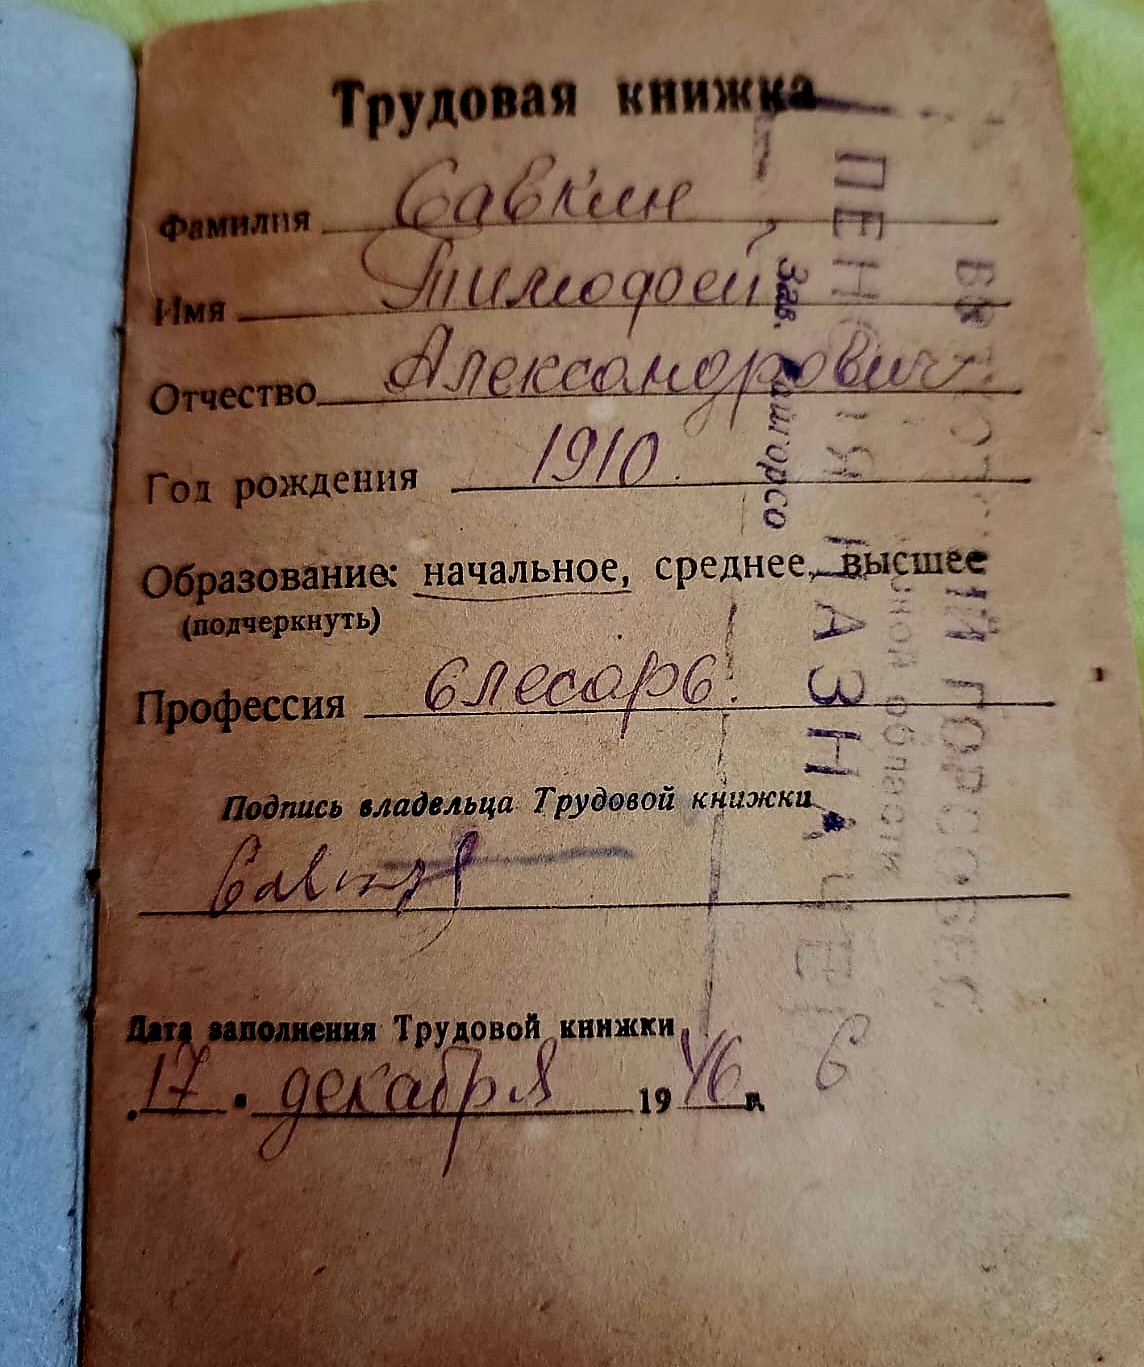 Трудовая книжка
Фамилия Савкин
Имя Тимофей
Отчество Александрович
Год рождения 1910.
Образование: начальное, среднее, высшее
(подчеркнуть)
Профессия слесарь.
Подпись владельца Трудовой книжки
Дата заполнения Трудовой книжки
17 декабря 1946 г.
6
ПЕНСИЯ НАЗНАЧЕНА
Зав.
ГОРСОБЕС
области